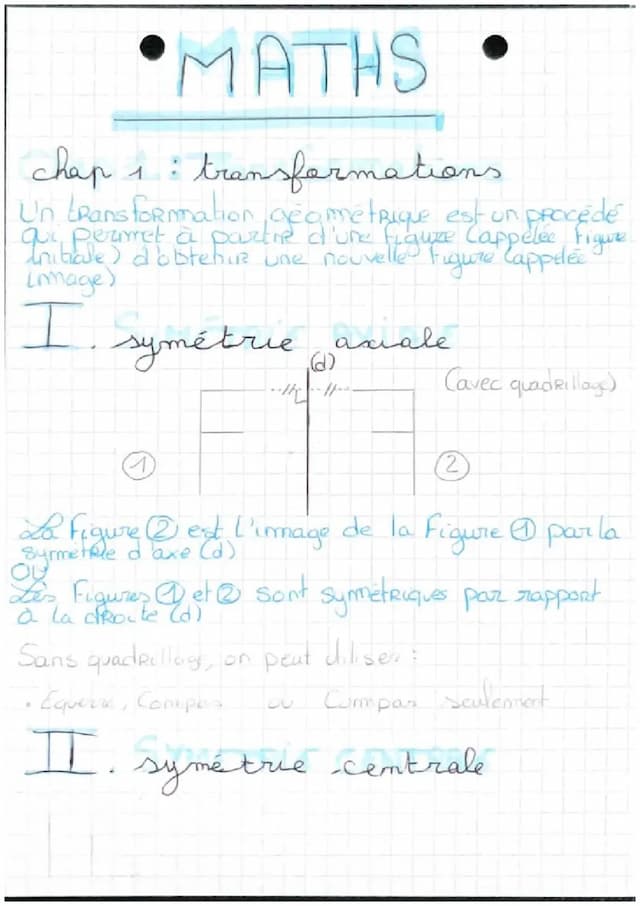 MATHS
chap 1 : transformations
Un transformation géométrique est un procédé
qui permet à partir d'une figure (appelée figure
initiale) d'obtenir une nouvelle figure (appelée
image)
I. symétrie axiale
(d)
(avec quadrillage)
1
2
La figure 2 est l'image de la figure 1 par la
symétrie d'axe (d)
OU
Les figures 1 et 2 sont symétriques par rapport
à la droite (d)
Sans quadrillage, on peut utiliser :
• Equerre, Compas ou Compas seulement
II. symétrie centrale